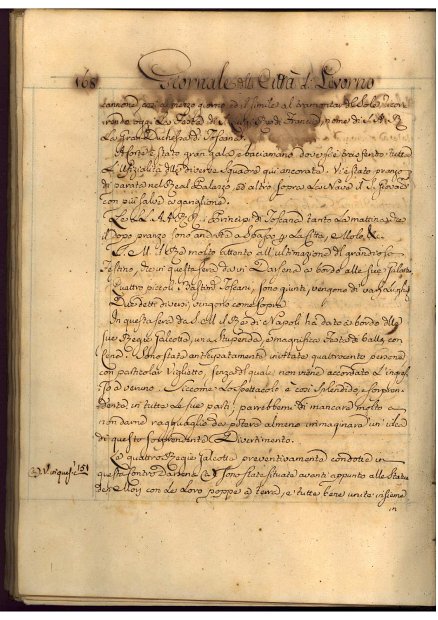 168 Giornale della Città di Livorno
cannone, così a mezzo giorno ed il simile al tramontar del Sole
oggi la Festa di Francia, nome di S. A. R.
La Gran Duchessa di Toscana.
A Corte è stato gran gala, e baciamano
L'Uffizialità delle diverse Squadre qui ancorate. Vi è stato pranzo
di parata nel Real Palazzo, ed altro sopra la Nave il S. Giovacchino
con più salve
Le LL. AA. RR. i Principi di Toscana tanto la mattina, che
il dopo pranzo sono andati a spasso per la Città, e Molo, &c.
S. M. il Re molto attento all'ultimazione del grandioso
Festino, che in questa sera darà in Darsena a bordo alle sue Galeotte
Quattro piccoli Bastim.ti Toscani, sono giunti, vengono da
diversi, vengono come sopra
In questa sera da S. M. il Re di Napoli ha dato a bordo delle
sue Regie Galeotte, un stupenda, e magnifica Festa di ballo, con
Cena. Sono state anticipatamente invitate quattrocento persone
con particolar Viglietto, senza del quale non viene accordato l'ingres-
so a veruno. Siccome lo spettacolo è così splendido, e sorpren-
dente in tutte le sue parti, parrebbemi di mancare molto a
non darne ragguaglio da potersi almeno immaginare un'idea
di questo sorprendente Divertimento.
Le quattro Regie Galeotte preventivamente condotte in
questa Darsena (a) sono state situate avanti appunto alle Statue
dei Mori con le loro poppe a terra, e tutte bene unite insieme
in
(a) 151